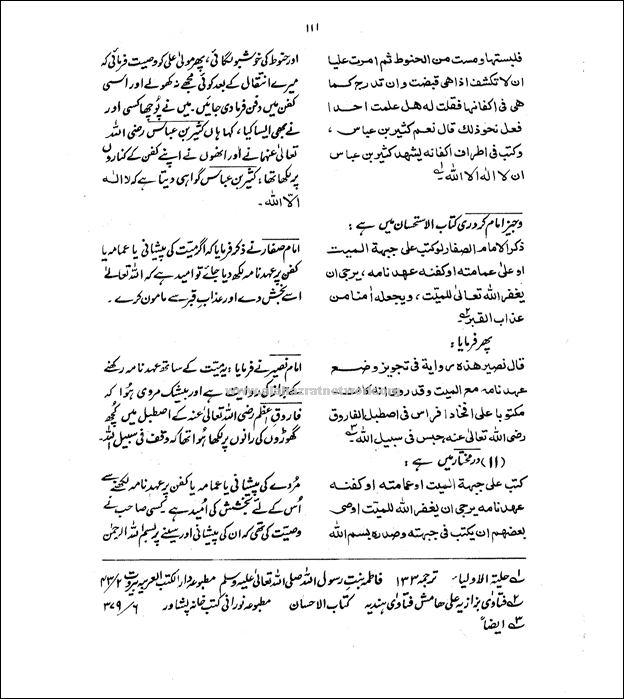 ۱۱۱
فلبستها ومست من الحنوط ثم امرت علیا
ان لا تکشف اذا هی قبضت وان تدرج کما
هی فی اکفانها فقلت له هل علمت احدا
فعل نحو ذلک قال نعم کثیر بن عباس ،
وکتب فی اطراف اکفانه یشهد کثیر بن عباس
ان لا الٰه الا الله ۔
اور حنوط کی خوشبو لگائی، پھر مولیٰ علی کو وصیت فرمائی کہ
میرے انتقال کے بعد کوئی مجھے نہ کھولے اور اسی
کفن میں دفن فرما دی جائیں۔ میں نے پوچھا کسی اور
نے بھی ایسا کیا، کہا ہاں کثیر بن عباس رضی اللہ
تعالیٰ عنہما نے اور انھوں نے اپنے کفن کے کناروں
پر لکھا تھا : کثیر بن عباس گواہی دیتا ہے کہ لا الٰہ
الّا اللہ ۔
وجیز امام کردری کتاب الاستحسان میں ہے :
ذکر الامام الصفار لو کتب علی جبهة المیت
او علی عمامته او کفنه عهد نامه ، یرجی ان
یغفر الله تعالیٰ للمیّت ، ویجعله اٰمنا من
عذاب القبر ۔
امام صفار نے ذکر فرمایا کہ اگر میّت کی پیشانی یا عمامہ یا
کفن پر عہد نامہ لکھ دیا جائے تو امید ہے کہ اللہ تعالیٰ
اسے بخش دے اور عذابِ قبر سے مامون کرے ۔
پھر فرمایا :
قال نصیر هذه روایة فی تجویز وضع
عهد نامه مع المیت وقد روی انه کان
مکتوبا علی افخاذ افراس فی اصطبل الفاروق
رضی الله تعالیٰ عنه حبس فی سبیل الله ۔
امام نصیر نے فرمایا : یہ میّت کے ساتھ عہد نامہ رکھنے
کے جواز کی روایت ہے اور بیشک مروی ہُوا کہ
فاروقِ اعظم رضی اللہ تعالیٰ عنہ کے اصطبل میں کُچھ
گھوڑوں کی رانوں پر لکھا ہُوا تھا کہ وقف فی سبیل اللہ۔
(۱۱) درمختار میں ہے :
کتب علی جبهة المیت او عمامته او کفنه
عهد نامه یرجی ان یغفر الله للمیّت اوصی
بعضهم ان یکتب فی جبهته وصدره بسم الله
مُردے کی پیشانی یا عمامہ یا کفن پر عہد نامہ لکھنے سے
اُس کے لئے بخشش کی اُمید ہے کسی صاحب نے
وصیت کی تھی کہ ان کی پیشانی اور سینے پر بسم اللہ الرحمٰن
۱ حلیۃ الاولیاء ترجمہ ۱۳۳ فاطمہ بنت رسول اللہ صلی اللہ تعالیٰ علیہ وسلم مطبوعہ دار الکتب العربیہ بیروت ۲/ ۴۳
۲ فتاوٰی بزازیہ علی ھامش فتاوٰی ہندیہ کتاب الاحسان مطبوعہ نورانی کتب خانہ پشاور ۶/ ۳۷۹
۳ ایضاً